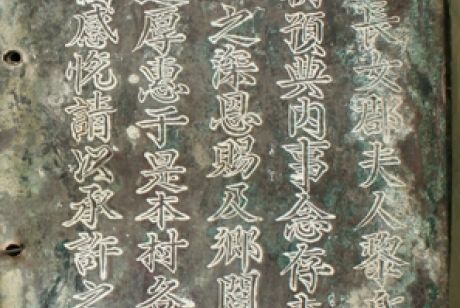 長女郡夫人黎
預典内事念存
之深恩賜及鄉
厚惠于是本村各
感悅請以承許之